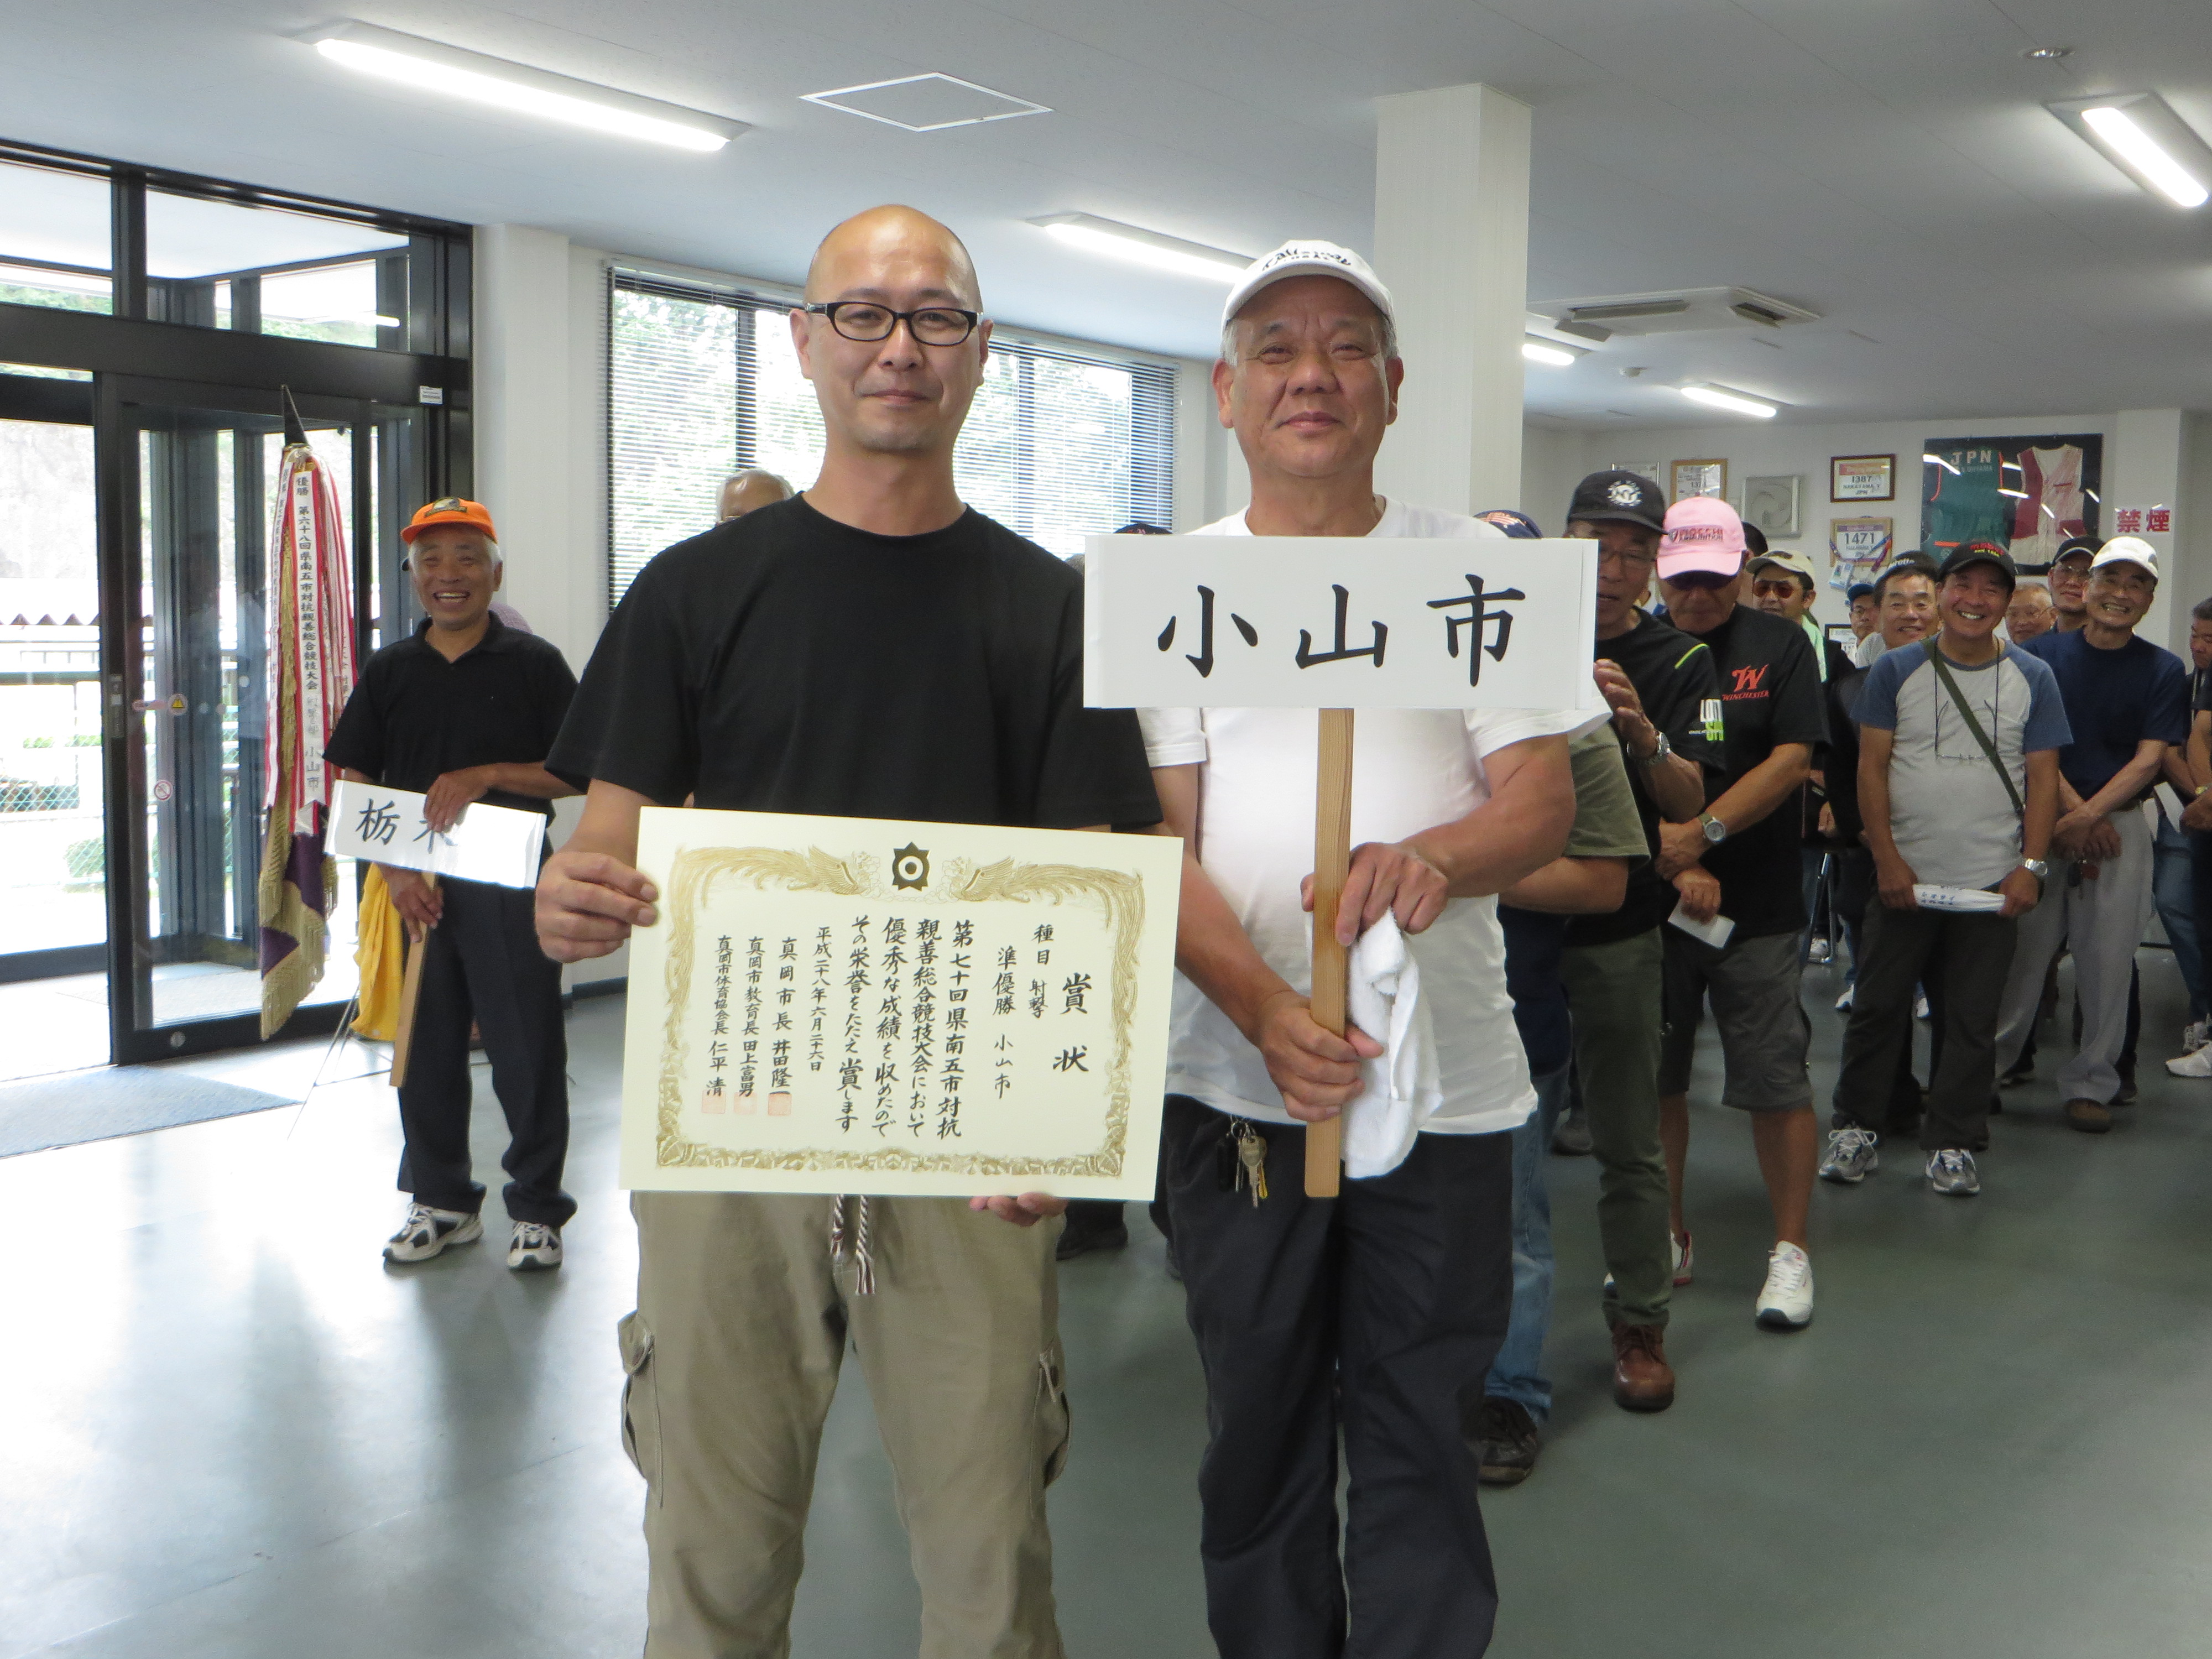 小山市
栃木
賞状
種目 射撃
準優勝 小山市
第七十回県南五市対抗
親善総合競技大会において
優秀な成績を収めたので
その栄誉をたたえ賞します
平成二十八年六月二十六日
真岡市長 井田隆一
真岡市教育長 田上富男
真岡市体育協会長 仁平清
優勝 第六十八回県南五市対抗親善総合競技大会
小山市
JPN
1387
1471
禁煙
W
WINCHESTER